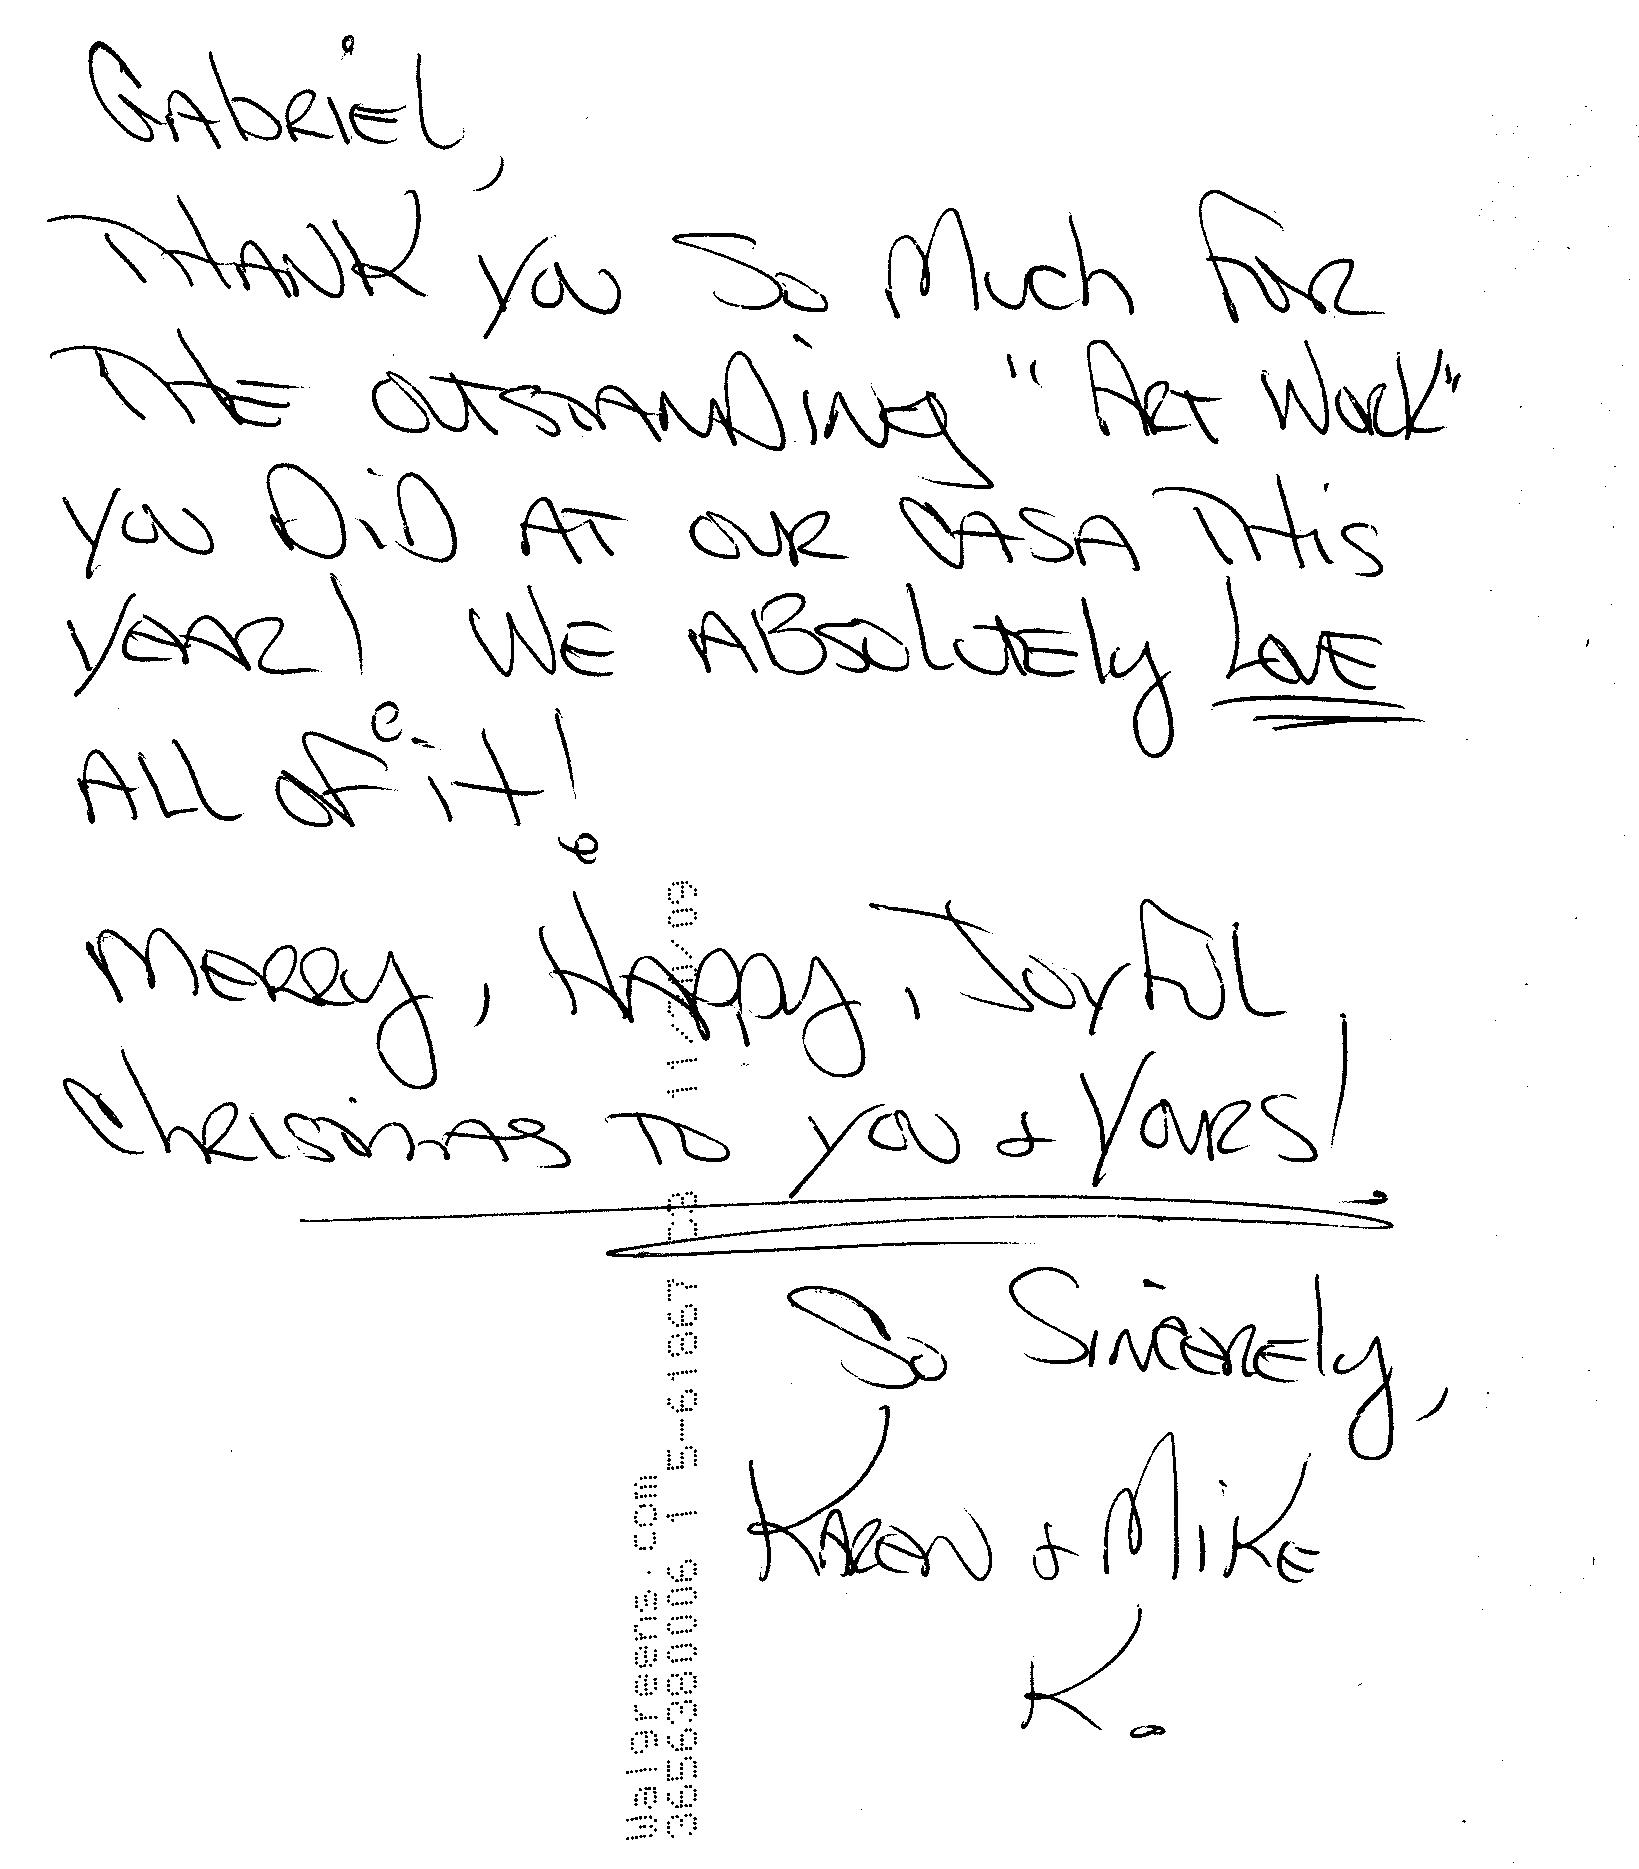 Gabriel,
THANK you So Much For
THE OUTSTANDiNg "ART WORK"
you DiD AT OUR CASA THis
YEAR! WE ABSOLUTELY LOVE
ALL OF it!
MERRY, HAppy, JOYFUL
ChRISTMAS TO YOU & YOURS!
So SINCERELY,
KAREN & MIKE
K.
Walgreens.com